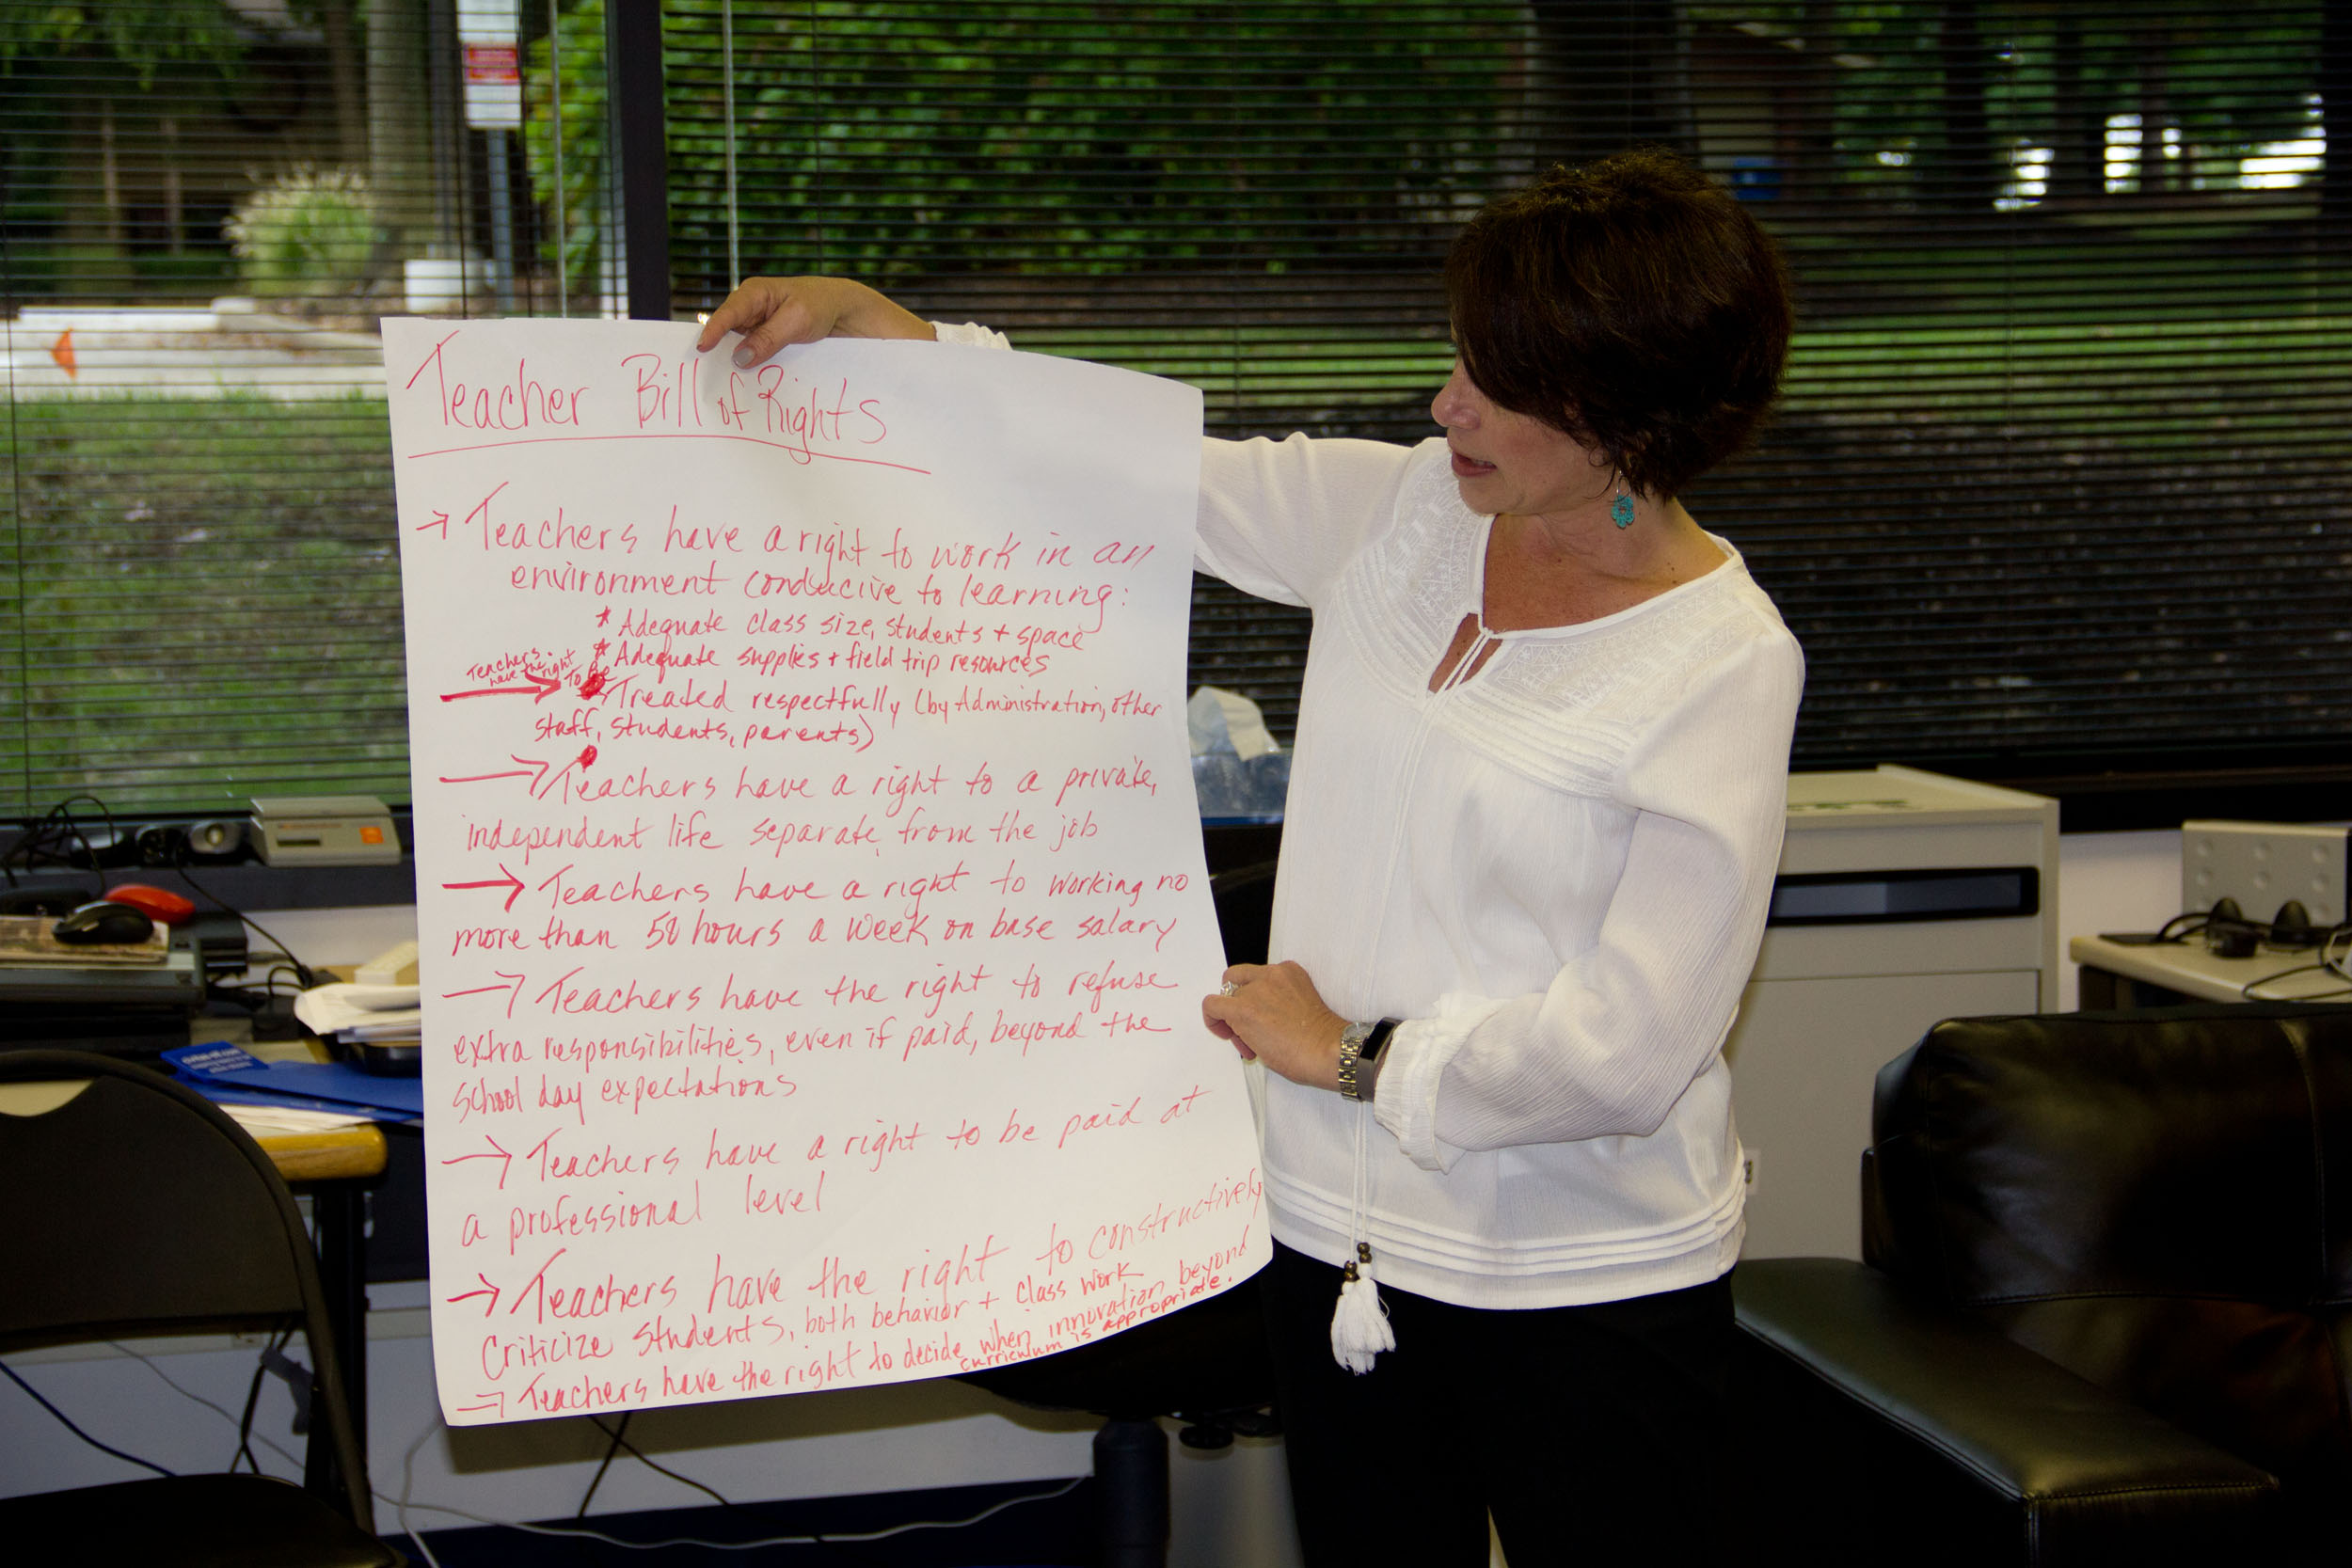 Teacher Bill of Rights
→ Teachers have a right to work in an
environment conducive to learning:
* Adequate class size, students + space
* Adequate supplies + field trip resources
Teachers have the right To Be
→ Treated respectfully (by Administration, other
staff, students, parents)
→ Teachers have a right to a private,
independent life separate from the job
→ Teachers have a right to working no
more than 50 hours a week on base salary
→ Teachers have the right to refuse
extra responsibilities, even if paid, beyond the
school day expectations
→ Teachers have a right to be paid at
a professional level
→ Teachers have the right to constructively
criticize students, both behavior + class work
→ Teachers have the right to decide when innovation beyond
curriculum is appropriate.